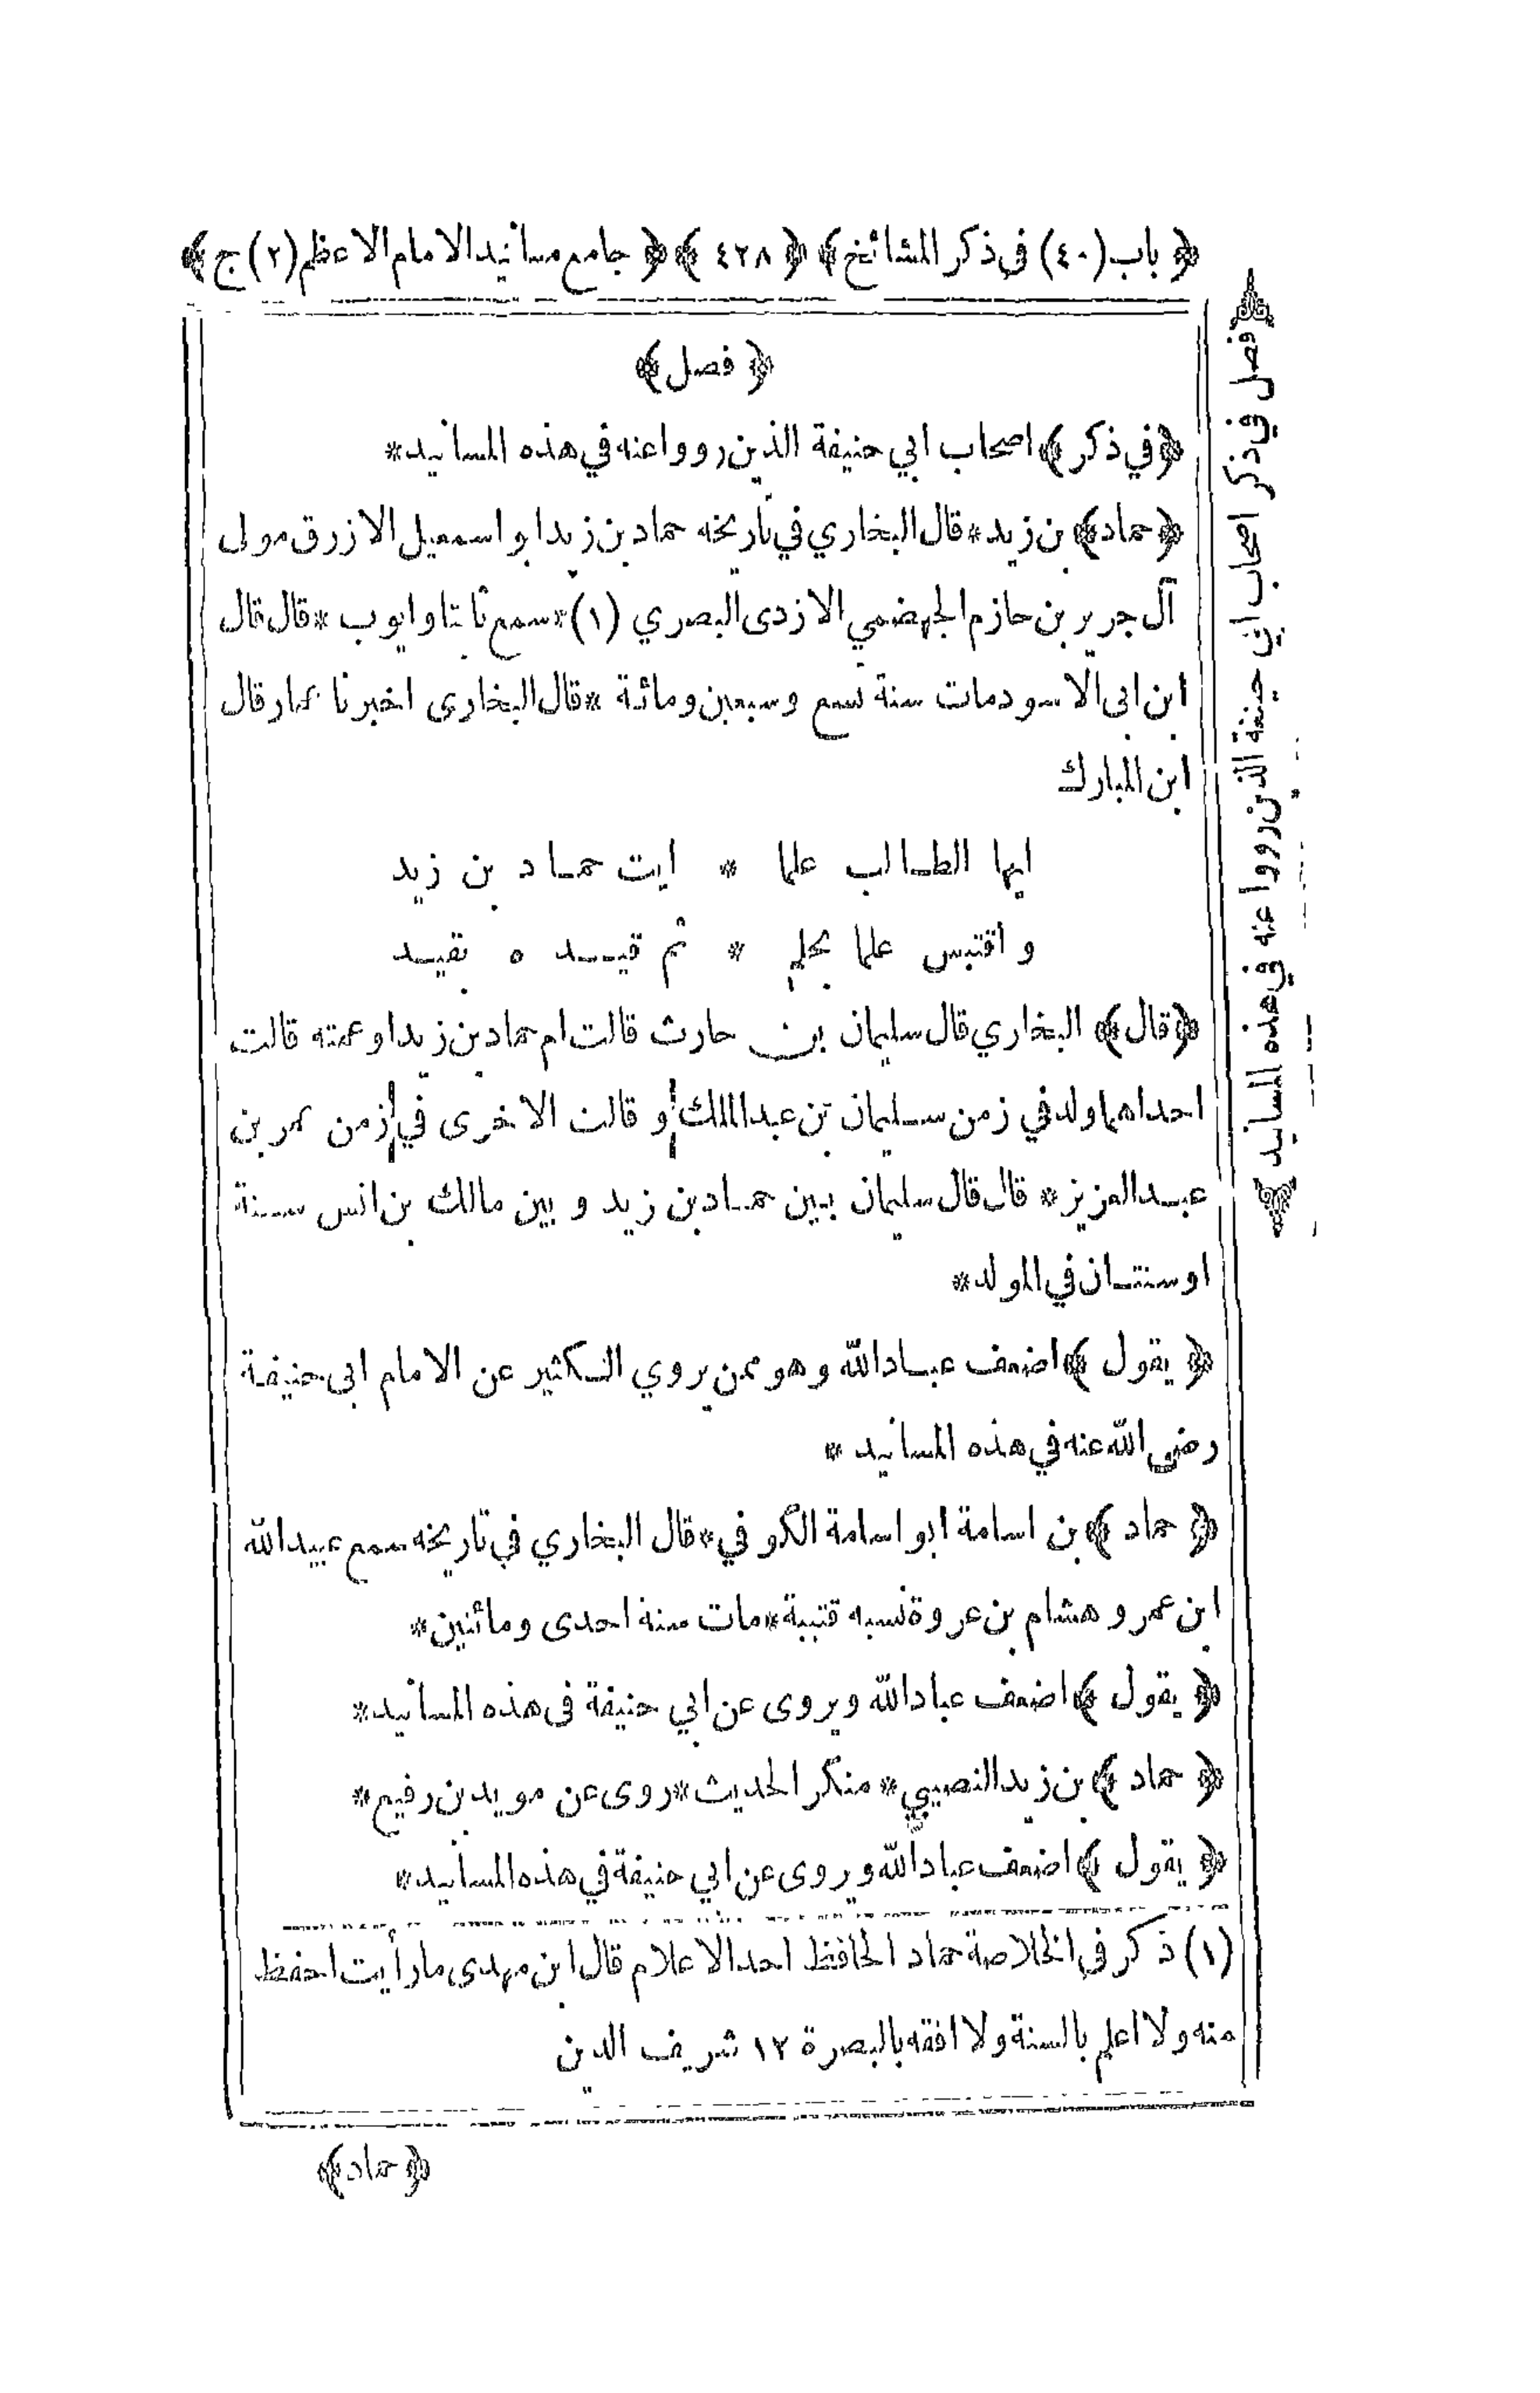 ﴿ باب (٤٠) فى ذكر المشائخ ﴾ ﴿ ٤٢٨ ﴾ ﴿ جامع مسانيد الامام الاعظم (٢) ج ﴾
﴿ فصل ﴾
﴿ في ذكر ﴾ اصحاب ابي حنيفة الذين رووا عنه في هذه المسانيد *
﴿ حماد ﴾ بن زيد * قال البخاري في تاريخه حماد بن زيد ابو اسمعيل الازرق مولى
آل جرير بن حازم الجهضمي الازدى البصري (١) * سمع ثابتا وايوب * قال قال
ابن ابى الاسود مات سنة تسع وسبعين ومائة * قال البخارى اخبرنا عمار قال
ابن المبارك
ايها الطالب علما * ايت حماد بن زيد
و اقتبس علما بحلم * ثم قيده بقيد
﴿ قال ﴾ البخاري قال سليمان بن حارث قالت ام حماد بن زيد او عمته قالت
احداهما ولد في زمن سليمان بن عبد الملك و قالت الاخرى في زمن عمر بن
عبد العزيز * قال قال سليمان بين حماد بن زيد و بين مالك بن انس سنة
او سنتان في المولد *
﴿ يقول ﴾ اضعف عباد الله وهو ممن يروي الكثير عن الامام ابى حنيفة
رضى الله عنه في هذه المسانيد *
﴿ حماد ﴾ بن اسامة ابو اسامة الكوفي * قال البخاري في تاريخه سمع عبيد الله
ابن عمر و هشام بن عروة نسبه قتيبة * مات سنة احدى ومائتين *
﴿ يقول ﴾ اضعف عباد الله ويروى عن ابي حنيفة فى هذه المسانيد *
﴿ حماد ﴾ بن زيد النصيبي * منكر الحديث * روى عن مويد بن رفيع *
﴿ يقول ﴾ اضعف عباد الله ويروى عن ابي حنيفة في هذه المسانيد *
(١) ذكر فى الخلاصة حماد الحافظ احد الاعلام قال ابن مهدى ما رأيت احفظ
منه ولا اعلم بالسنة ولا افقه بالبصرة ١٢ شريف الدين
﴿ حماد ﴾
﴿ فصل في ذكر اصحاب ابي حنيفة الذين رووا عنه في هذه المسانيد ﴾